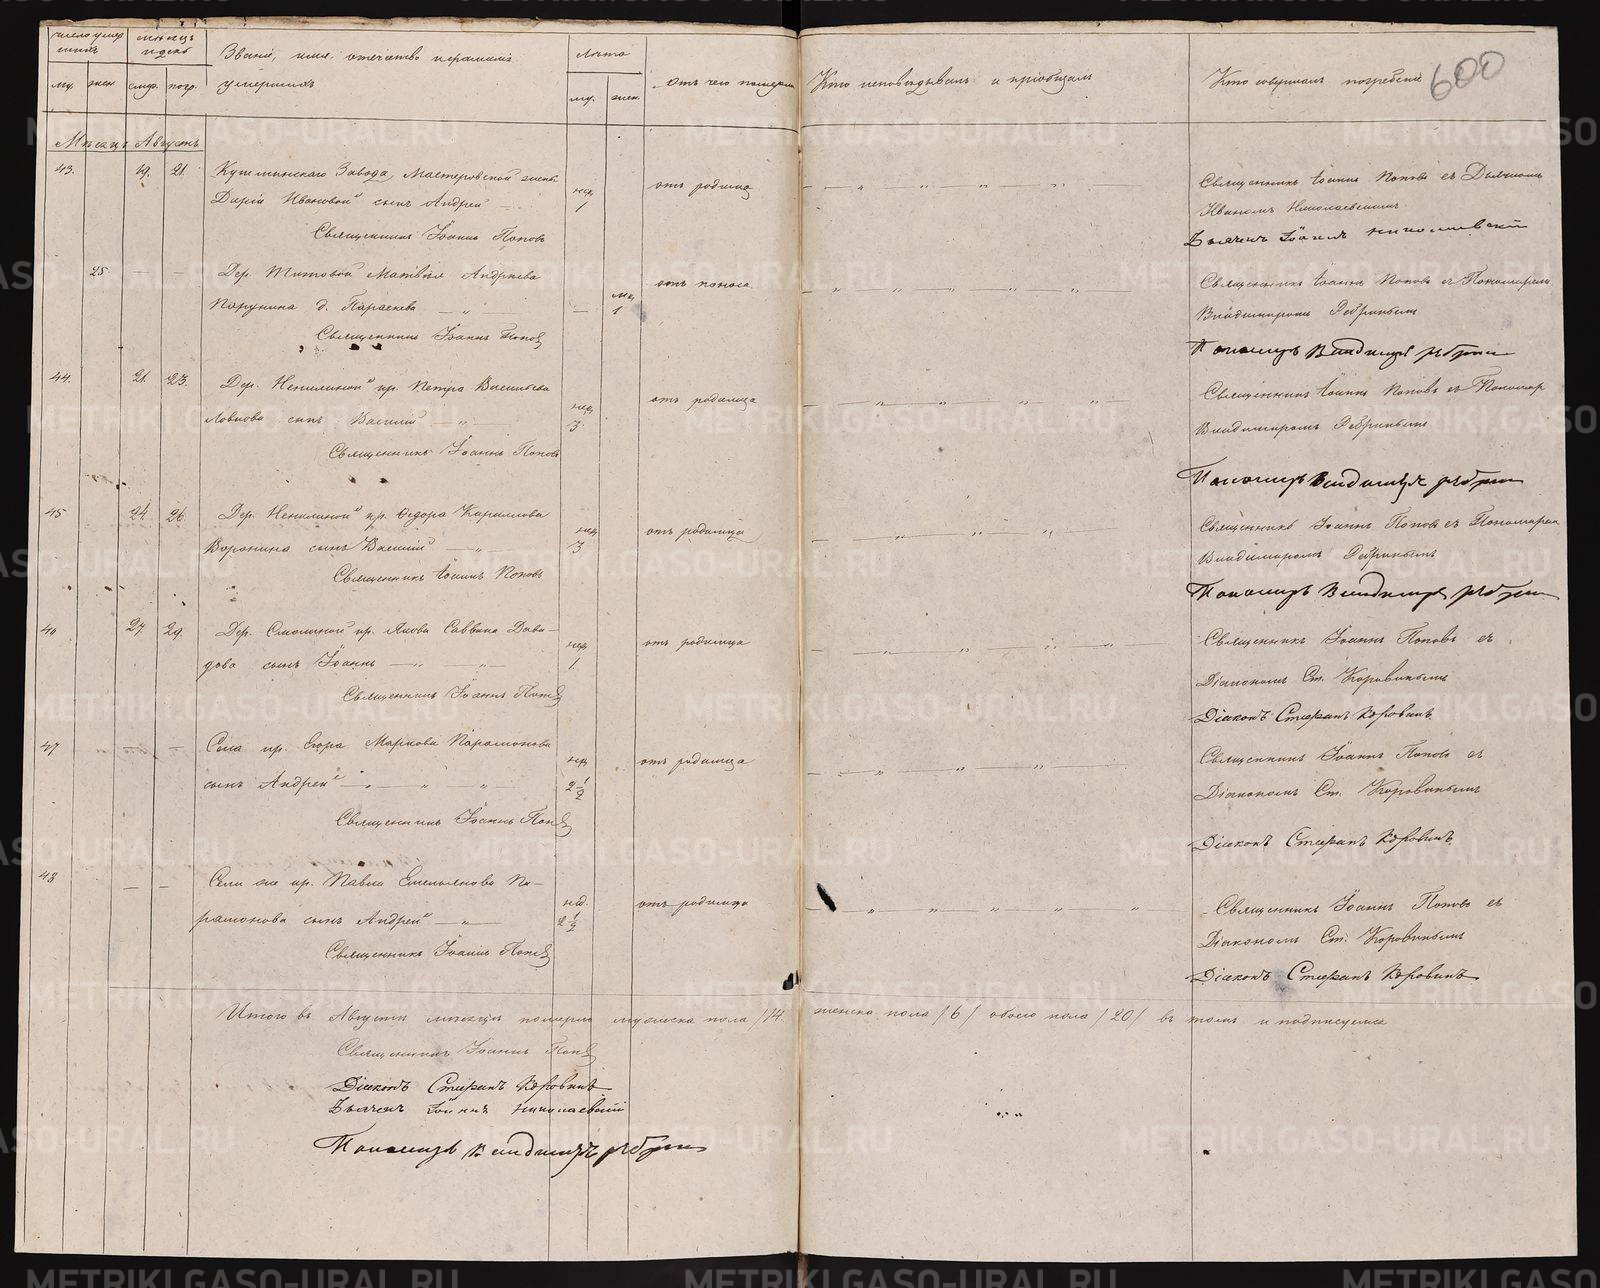 число умер
шихъ
мѣсяцъ
и день
му.
жен.
смер.
погр.
Званіе, имя, отчество и фамилія
умершихъ
Лѣта
му.
жен.
Отъ чего померъ
Кто исповѣдывалъ и пріобщалъ
Кто совершалъ погребеніе
600
Мѣсяцъ Августъ
43. 19. 21. Кушвинскаго Завода Мастеровской жены
Даріи Ивановой сынъ Андрей
нед. 1
отъ родимца
Священникъ Іоаннъ Поповъ съ Дьячкомъ
Иваномъ Николаевскимъ
Священникъ Іоаннъ Поповъ
Дьячекъ Іоаннъ Николаевскій
25. — — Дер. Титовой Матвѣя Андреева
Парунина д. Параскева — „
— мц. 1
отъ поноса.
Священникъ Іоаннъ Поповъ съ Пономаремъ
Владимиромъ Ребринымъ
Священникъ Іоаннъ Поповъ
Пономарь Владимиръ Ребринъ
44. 21. 23. Дер. кр. Петра Васильева
сынъ Василій — „ —
нед. 3
отъ родимца
Священникъ Іоаннъ Поповъ съ Пономар
Владимиромъ Ребринымъ
Священникъ Іоаннъ Поповъ
Пономарь Владимиръ Ребринъ
45 24. 26. Дер. кр. Ѳедора Кириллова
Воронина сынъ Василій — „ —
нед. 3
отъ родимца
Священникъ Іоаннъ Поповъ съ Пономаремъ
Владимиромъ Ребринымъ
Священникъ Іоаннъ Поповъ
Пономарь Владимиръ Ребринъ
46 27. 29. Дер. Смолиной кр. Якова Саввина Давы–
дова сынъ Іоаннъ — „ — „
нед. 1
отъ родимца
Священникъ Іоаннъ Поповъ съ
Діакономъ Ст. Коровинымъ
Священникъ Іоаннъ Поповъ
Діаконъ Стефанъ Коровинъ
47 — — Села кр. Егора Маркова Парамонова
сынъ Андрей — „ — „ — „
нед. 2 1/2
отъ родимца
Священникъ Іоаннъ Поповъ съ
Діакономъ Ст. Коровинымъ
Священникъ Іоаннъ Поповъ
Діаконъ Стефанъ Коровинъ
48 — — Села же кр. Павла Емельянова Па–
рамонова сынъ Андрей — „ —
нед. 2 1/2
отъ родимца
Священникъ Іоаннъ Поповъ съ
Діакономъ Ст. Коровинымъ
Священникъ Іоаннъ Поповъ
Діаконъ Стефанъ Коровинъ
Итого въ Августѣ мѣсяцѣ померло мужеска пола /14. женска пола /6/ обоего пола /20/ въ томъ и подписуемся
Священникъ Іоаннъ Поповъ
Діаконъ Стефанъ Коровинъ
Дьячекъ Іоаннъ Николаевскій
Пономарь Владимиръ Ребринъ
METRIKI.GASO-URAL.RU